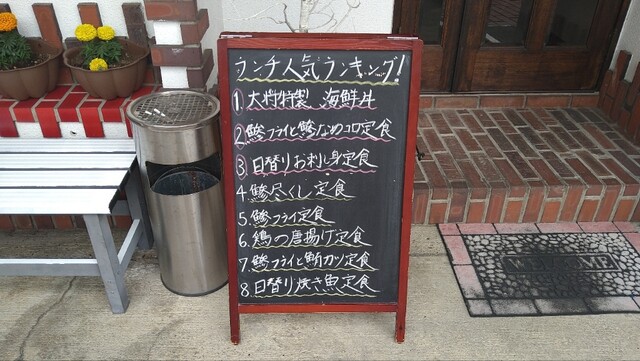 ランチ人気ランキング!
1. 大将特製 海鮮丼
2. 鯵フライと鯵なめコロ定食
3. 日替りお刺し身定食
4. 鯵尽くし定食
5. 鯵フライ定食
6. 鶏の唐揚げ定食
7. 鯵フライと鮪カツ定食
8. 日替り焼き魚定食
WELCOME